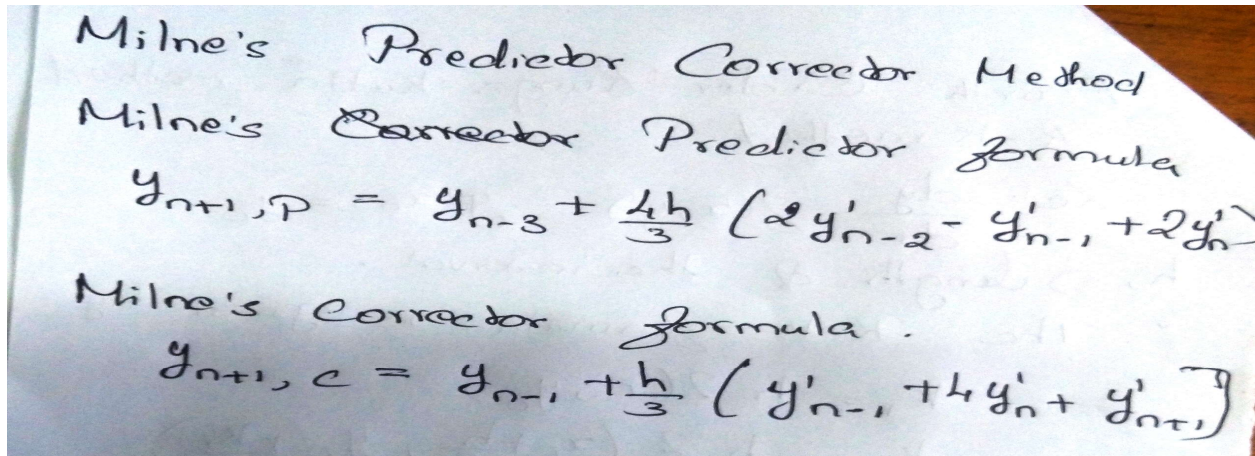 Milne's Predictor Corrector Method
Milne's Corrector Predictor formula
yₙ₊₁,P = yₙ₋₃ + 4h/3 (2y'ₙ₋₂ - y'ₙ₋₁ + 2y'ₙ)
Milne's Corrector formula.
yₙ₊₁, c = yₙ₋₁ + h/3 (y'ₙ₋₁ + 4y'ₙ + y'ₙ₊₁]